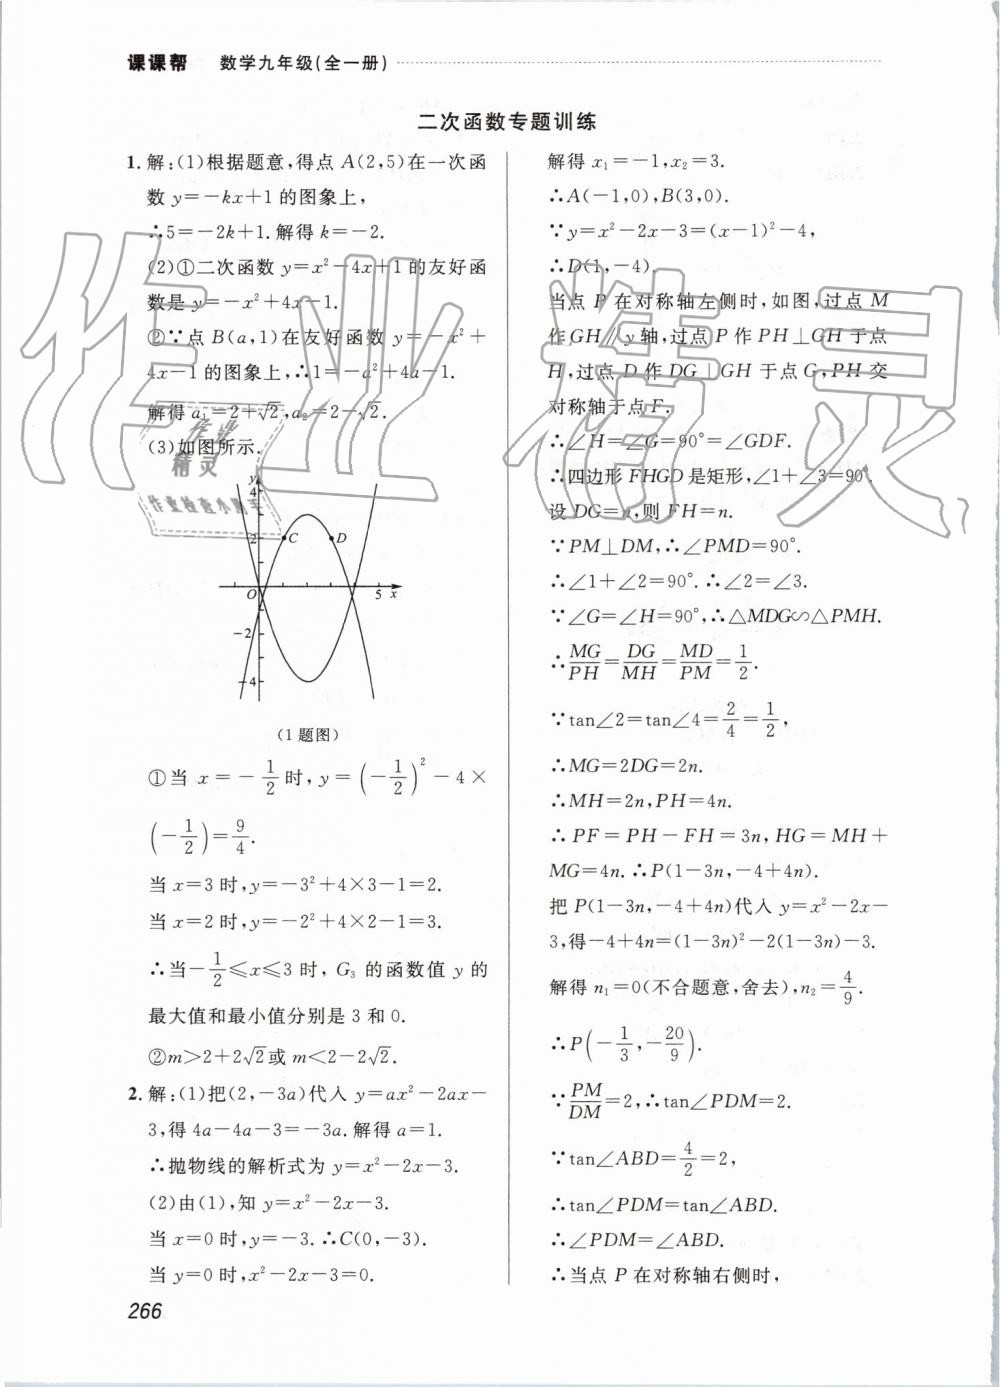 课课帮 数学九年级(全一册)
二次函数专题训练
1. 解:(1)根据题意,得点 A(2,5)在一次函
数 y=-kx+1 的图象上,
∴5=-2k+1. 解得 k=-2.
(2)①二次函数 y=x²-4x+1 的友好函
数是 y=-x²+4x-1.
②∵点 B(a,1)在友好函数 y=-x²+
4x-1 的图象上,∴1=-a²+4a-1.
解得 a₁=2+√2,a₂=2-√2.
(3)如图所示.
y
4
2
C
D
O
5
x
-2
-4
(1 题图)
①当 x=-1/2 时,y=(-1/2)²-4×
(-1/2)=9/4.
当 x=3 时,y=-3²+4×3-1=2.
当 x=2 时,y=-2²+4×2-1=3.
∴当-1/2≤x≤3 时, G₃ 的函数值 y 的
最大值和最小值分别是 3 和 0.
②m>2+2√2或 m<2-2√2.
2. 解:(1)把(2,-3a)代入 y=ax²-2ax-
3,得 4a-4a-3=-3a. 解得 a=1.
∴抛物线的解析式为 y=x²-2x-3.
(2)由(1),知 y=x²-2x-3.
当 x=0 时,y=-3. ∴C(0,-3).
当 y=0 时,x²-2x-3=0.
解得 x₁=-1,x₂=3.
∴A(-1,0),B(3,0).
∵y=x²-2x-3=(x-1)²-4,
∴D(1,-4).
当点 P 在对称轴左侧时,如图,过点 M
作 GH∥y 轴,过点 P 作 PH⊥GH 于点
H,过点 D 作 DG⊥GH 于点 G,PH 交
对称轴于点 F.
∴∠H=∠G=90°=∠GDF.
∴四边形 FHGD 是矩形,∠1+∠3=90°.
设 DG=n,则 FH=n.
∵PM⊥DM,∴∠PMD=90°.
∴∠1+∠2=90°. ∴∠2=∠3.
∵∠G=∠H=90°,∴△MDG∽△PMH.
∴MG/PH=DG/MH=MD/PM=1/2.
∵tan∠2=tan∠4=2/4=1/2,
∴MG=2DG=2n.
∴MH=2n,PH=4n.
∴PF=PH-FH=3n,HG=MH+
MG=4n. ∴P(1-3n,-4+4n).
把 P(1-3n,-4+4n)代入 y=x²-2x-
3,得-4+4n=(1-3n)²-2(1-3n)-3.
解得 n₁=0(不合题意,舍去),n₂=4/9.
∴P(-1/3,-20/9).
∵PM/DM=2,∴tan∠PDM=2.
∵tan∠ABD=4/2=2,
∴tan∠PDM=tan∠ABD.
∴∠PDM=∠ABD.
∴当点 P 在对称轴右侧时,
266
作业精灵
作业
精灵
作业检查小帮手